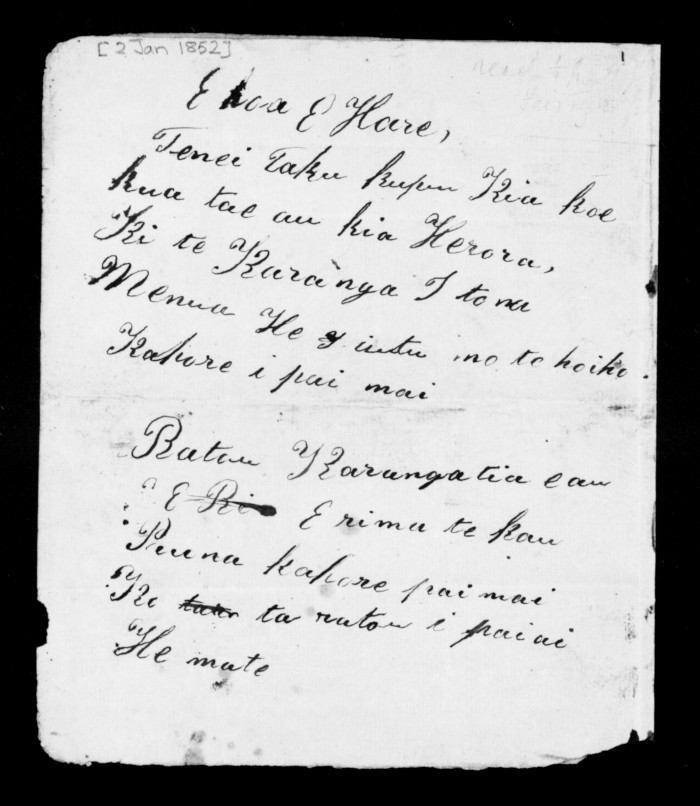 [2 Jan 1852]
E hoa E Hare,
Tenei Taku kupu Kia koe
kua tae au kia Herora,
Ki te Karanga I tona
Menua He utu mo te hoiho.
Kahore i pai mai
Ratou Karangatia e au
E Ri E rima te kau
Puna kahore pai mai
Ko ta ratou i pai ai
He mate